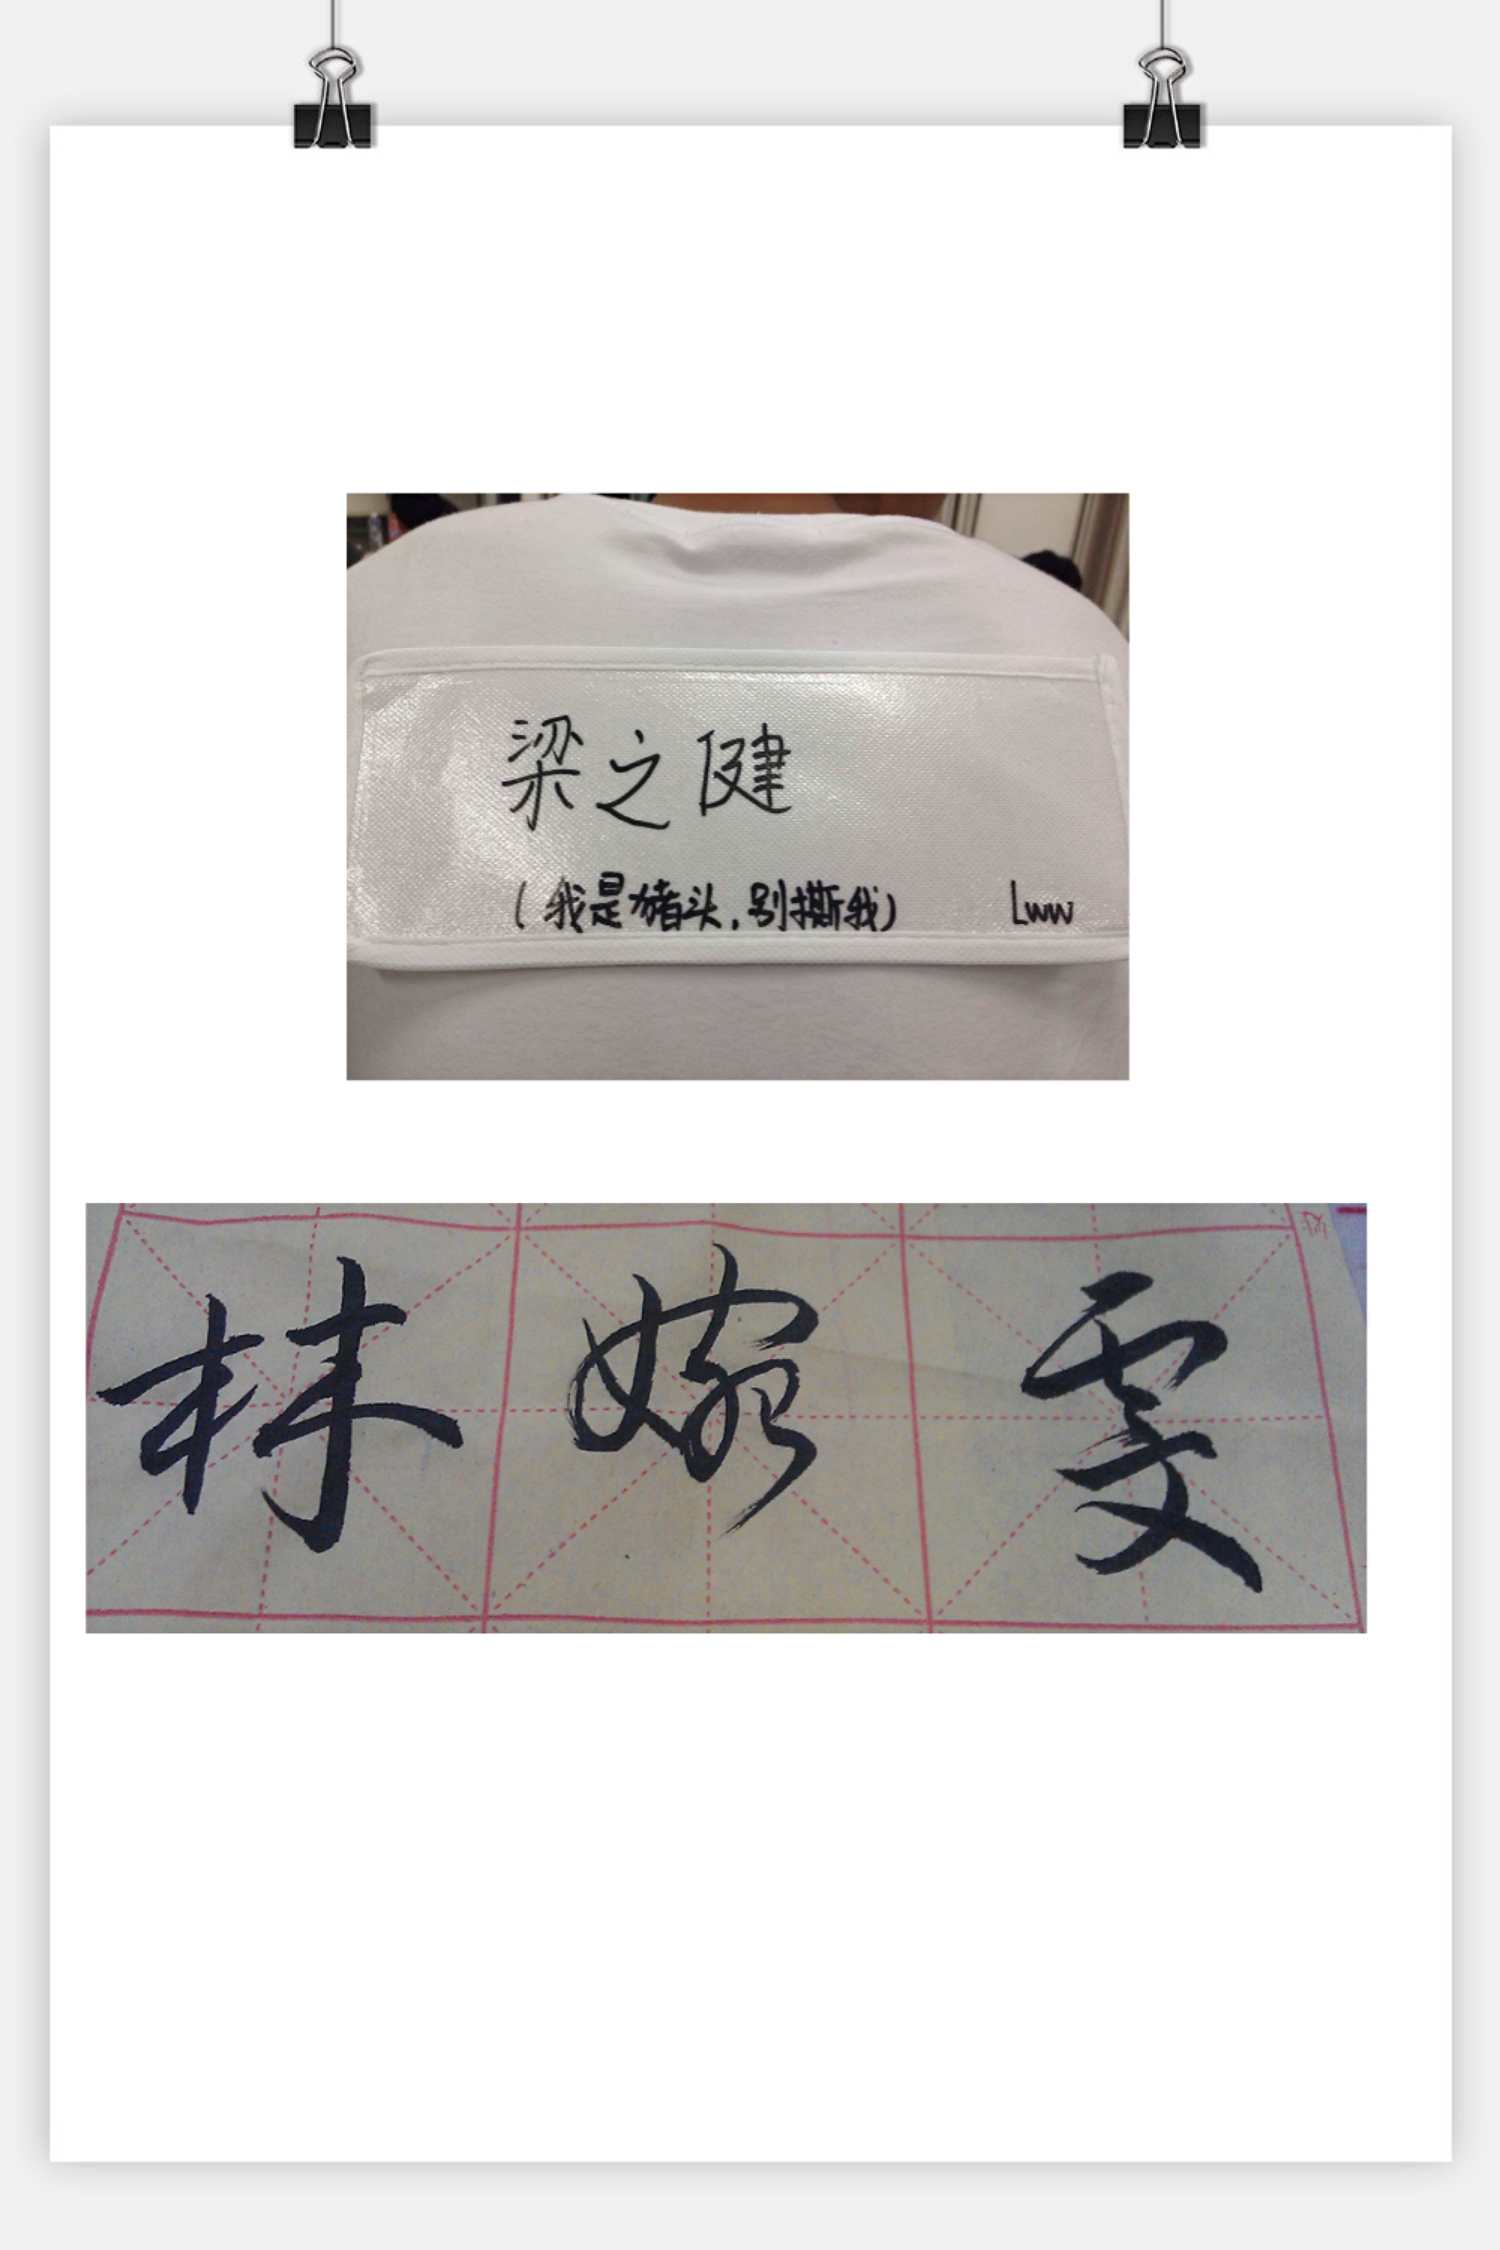 梁之健
(我是猪头,别撕我) Lww
林婉雯